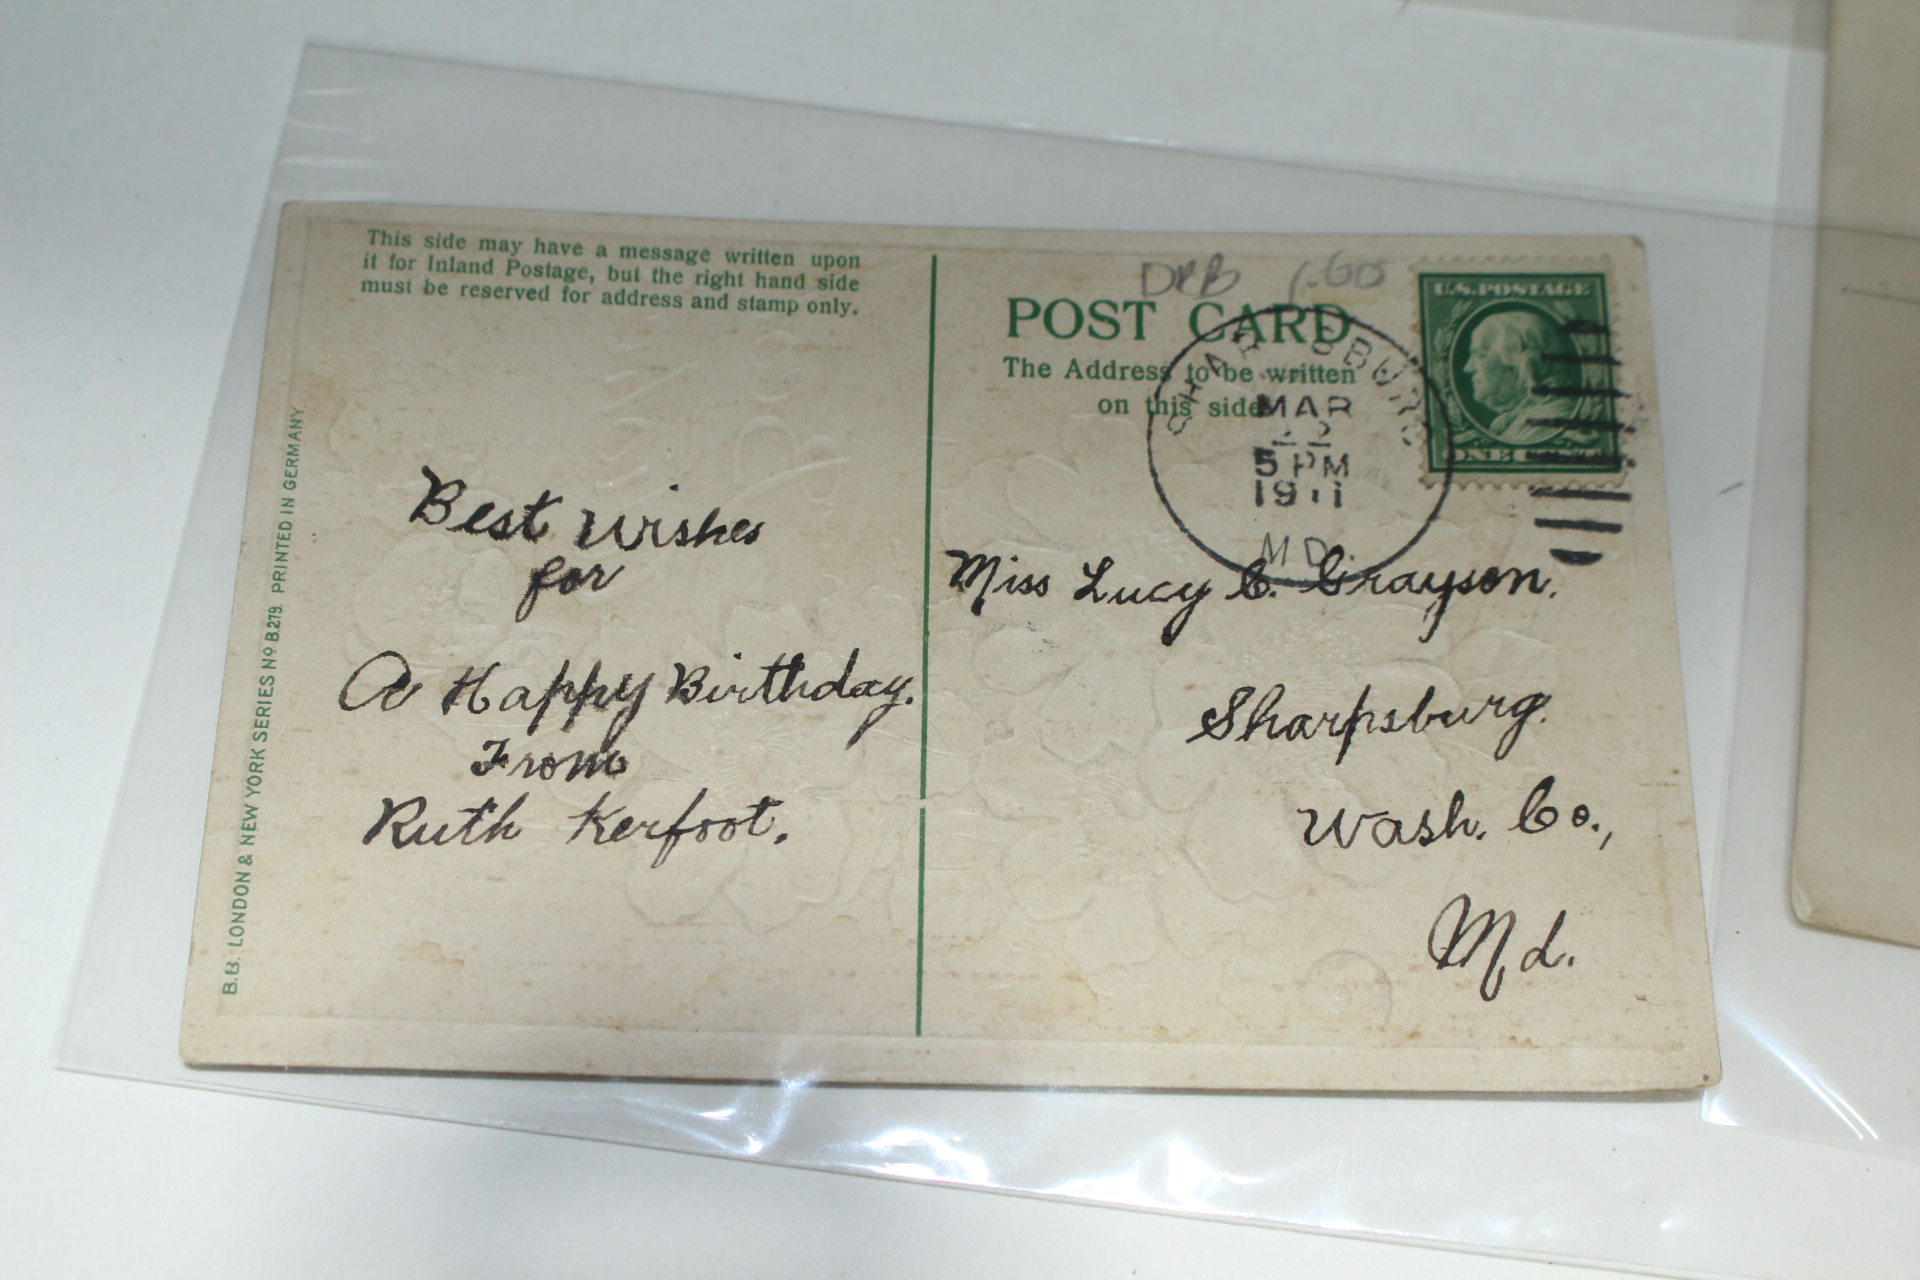 This side may have a message written upon
it for Inland Postage, but the right hand side
must be reserved for address and stamp only.
B.B. LONDON & NEW YORK SERIES No B.279. PRINTED IN GERMANY
Best wishes
for
A Happy Birthday.
From
Ruth Kerfoot.
POST CARD
The Address to be written
on this side
U.S. POSTAGE
ONE
MAR
5 PM
1911
MD.
Miss Lucy C. Grayson.
Sharpsburg.
Wash. Co.,
Md.